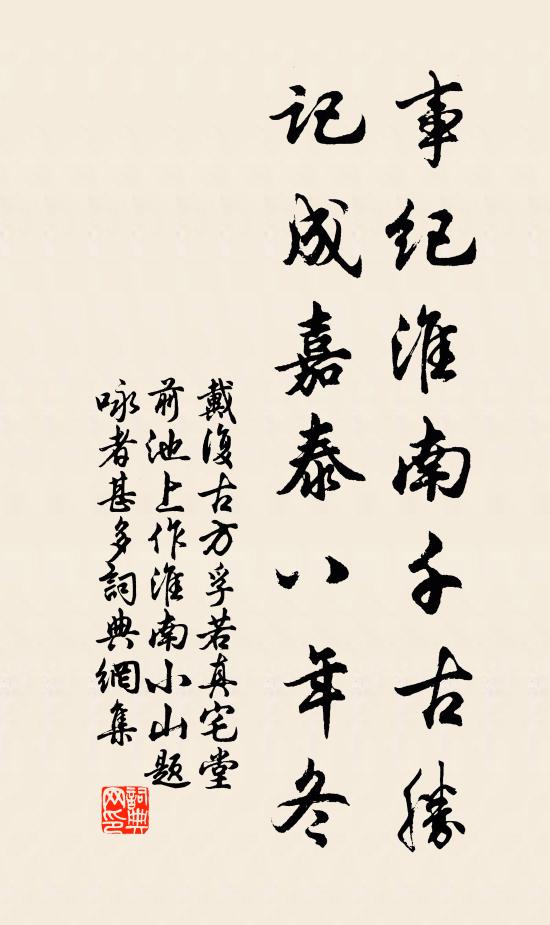 事纪淮南千古勝
記成嘉泰八年冬
戴復古方孚若真宅堂
前池上作淮南小山題
咏者甚多詞典網集
詞典网印